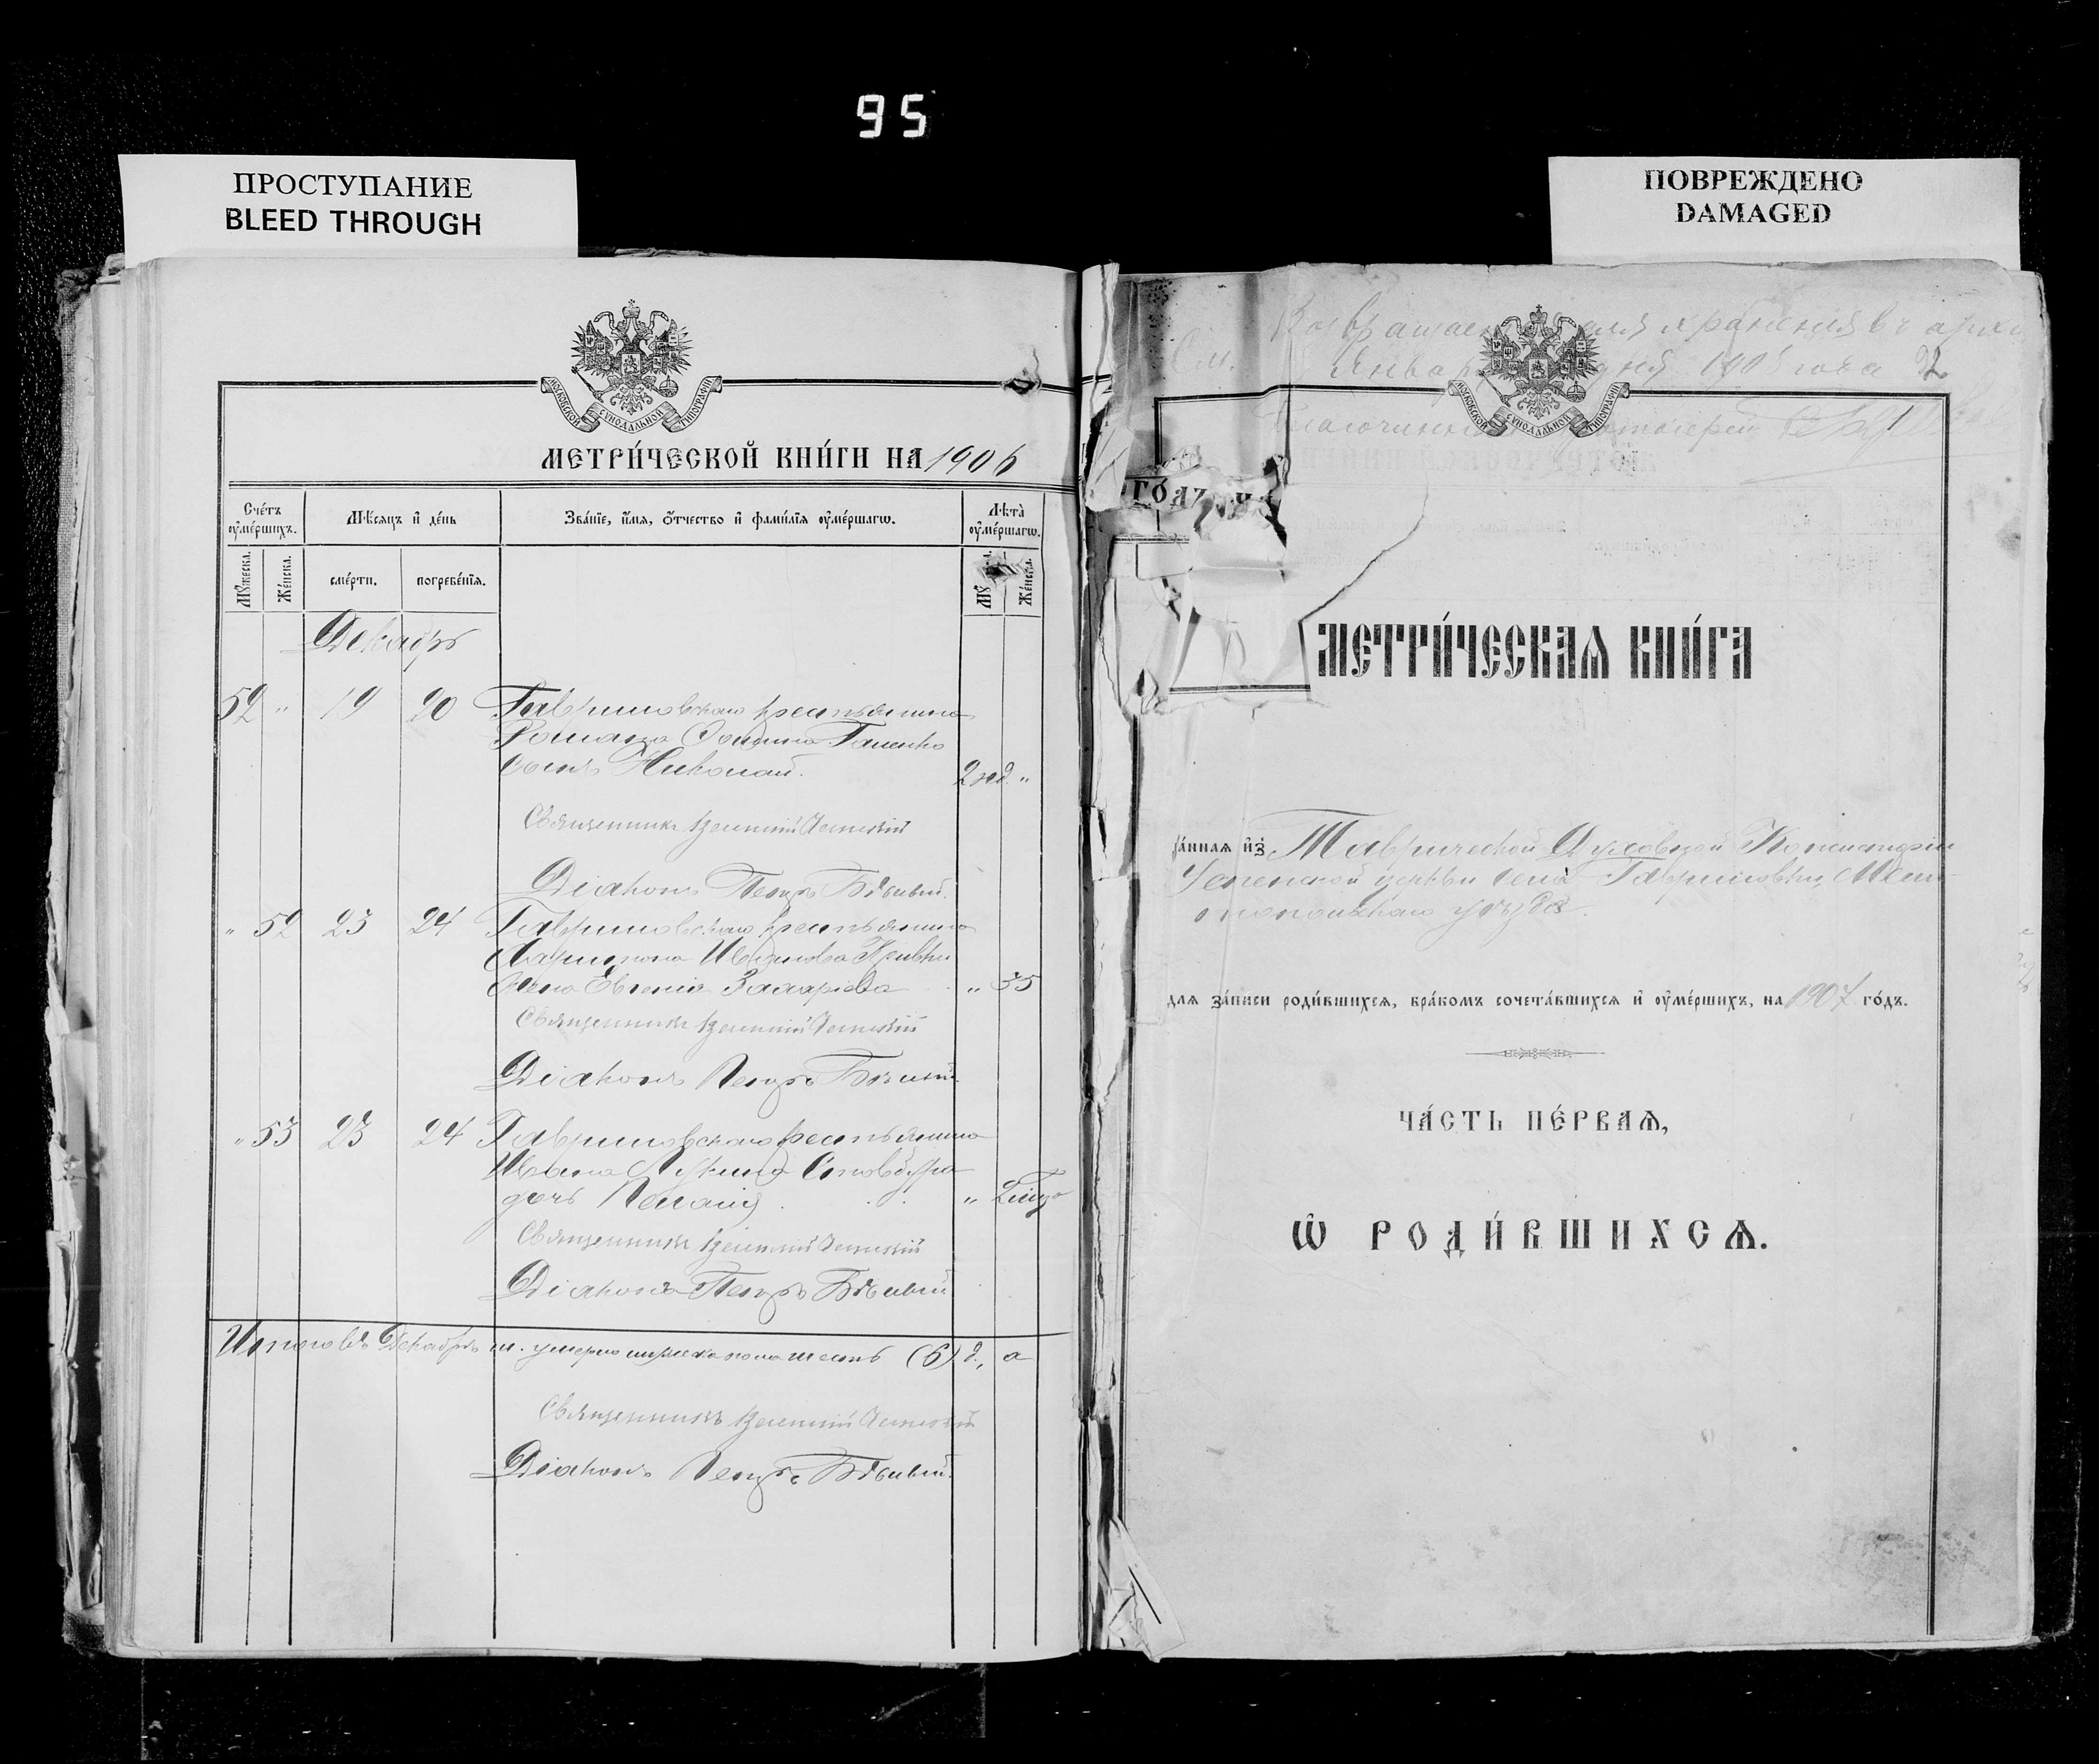 95
ПРОСТУПАНИЕ
BLEED THROUGH
ПОВРЕЖДЕНО
DAMAGED
МОСКОВСКОЙ СѴНОДАЛЬНОЙ ТИПОГРАФІИ
МЕТРИ́ЧЕСКОЙ КНИ́ГИ НА 1906
Сче́тъ ᲂу҆ме́ршихъ.
Мѣ́сяцъ и҆ де́нь
Зва́нїе, и҆́мя, ѻ҆́тчество и҆ фами́лїя ᲂу҆ме́ршагѡ.
Лѣ́та ᲂу҆ме́ршагѡ.
Мꙋ́жеска.
Же́нска.
сме́рти.
погребе́нїя.
Мꙋ́
Же́нска.
Декабрь
52 " 19 20 Гавриловскаго крестьянина
Романа
сынъ Николай. 2 нед. "
Священникъ
Діаконъ Петръ Бѣлый.
" 52 23 24 Гавриловскаго крестьянина
Иларіона Иванова Кривки
жена Евгенія Захаріева " 35
Священникъ
Діаконъ Петръ Бѣлый.
" 53 23 24 Гавриловскаго крестьянина
Ивана
дочь Пелагія "
Священникъ
Діаконъ Петръ Бѣлый
Итого въ Декабрѣ м. умерло мужеска пола шесть (6) д., а
Священникъ
Діаконъ Петръ Бѣлый.
Возвращает для храненія въ архи
Января дня 190 года
2
Благочинный
МОСКОВСКОЙ СѴНОДАЛЬНОЙ ТИПОГРАФІИ
ГО́ДЪ
МЕТРИ́ЧЕСКАѦ КНИ́ГА
да́нная и҆з̾ Таврической Духовной Консисторіи
Успенской церкви села Гавриловки, Мели-
топольскаго уѣзда.
для за́писи роди́вшихся, бра́комъ сочета́вшихся и҆ ᲂу҆ме́ршихъ, на 1907 го́дъ.
ЧА́СТЬ ПЕ́РВАѦ,
Ѡ҆ РОДИ́ВШИХСѦ.